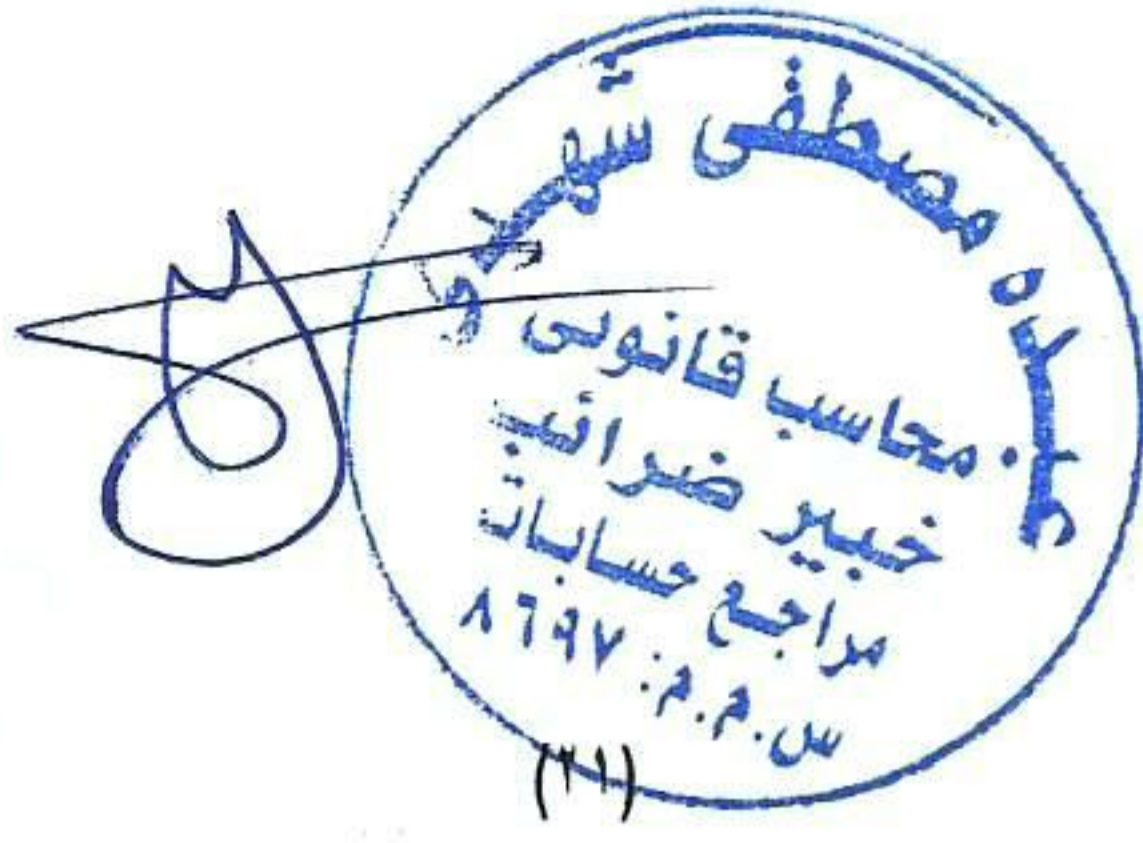 عبده مصطفى شهدى
محاسب قانونى
خبير ضرائب
مراجع حسابات
س.م.م: ٨٦٩٧
(٢١)